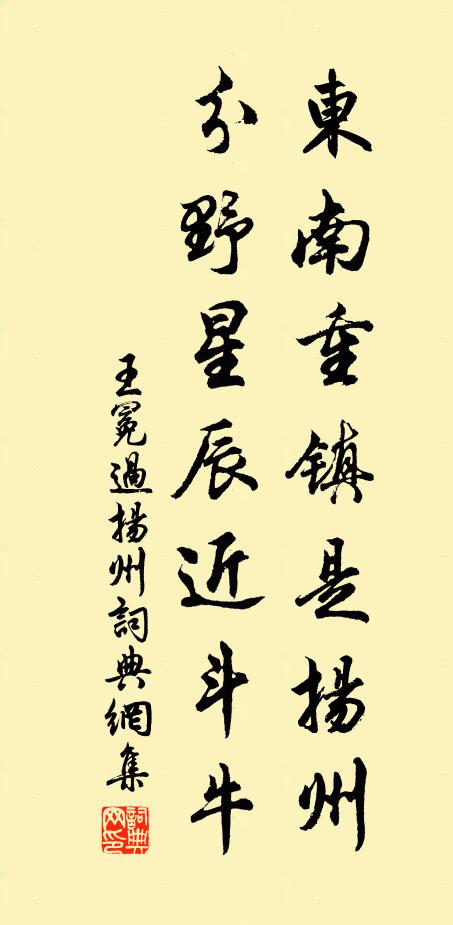 東南重鎮是揚州
分野星辰近斗牛
王冕過揚州詞典網集
詞典网印